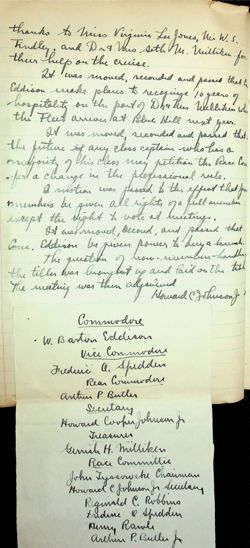 thanks to Miss Virginia Lee Jones, Mr W. S.
Findley, and Dr & Mrs Seth M. Milliken for
their help on the cruise.
It was moved, seconded and passed that
Eddison make plans to recognize 10 years of
hospitality on the part of Dr & Mrs Milliken when
the Fleet arrives at Blue Hill next year.
It was moved, seconded and passed that
the future of any class captain who has a
majority of his class may petition the Race Com
for a change in the professional rule.
A motion was passed to the effect that
members be given all rights of a full member
except the right to vote at meetings.
It was moved, second, and passed that
Com. Eddison be given power to buy a launch.
The question of non-member handling
the tiller was brought up and laid on the table
The meeting was then adjourned
Howard C Johnson Jr
Commodore
W. Barton Eddison
Vice Commodore
Frederic A. Spedden
Rear Commodore
Arthur P. Butler
Secretary
Howard Cooper Johnson Jr
Treasurer
Gerrish H. Milliken
Race Committee
John Chairman
Howard C Johnson Jr Secretary
Reginald C. Robbins
Frederic O Spedden
Henry Rawle
Arthur P. Butler Jr